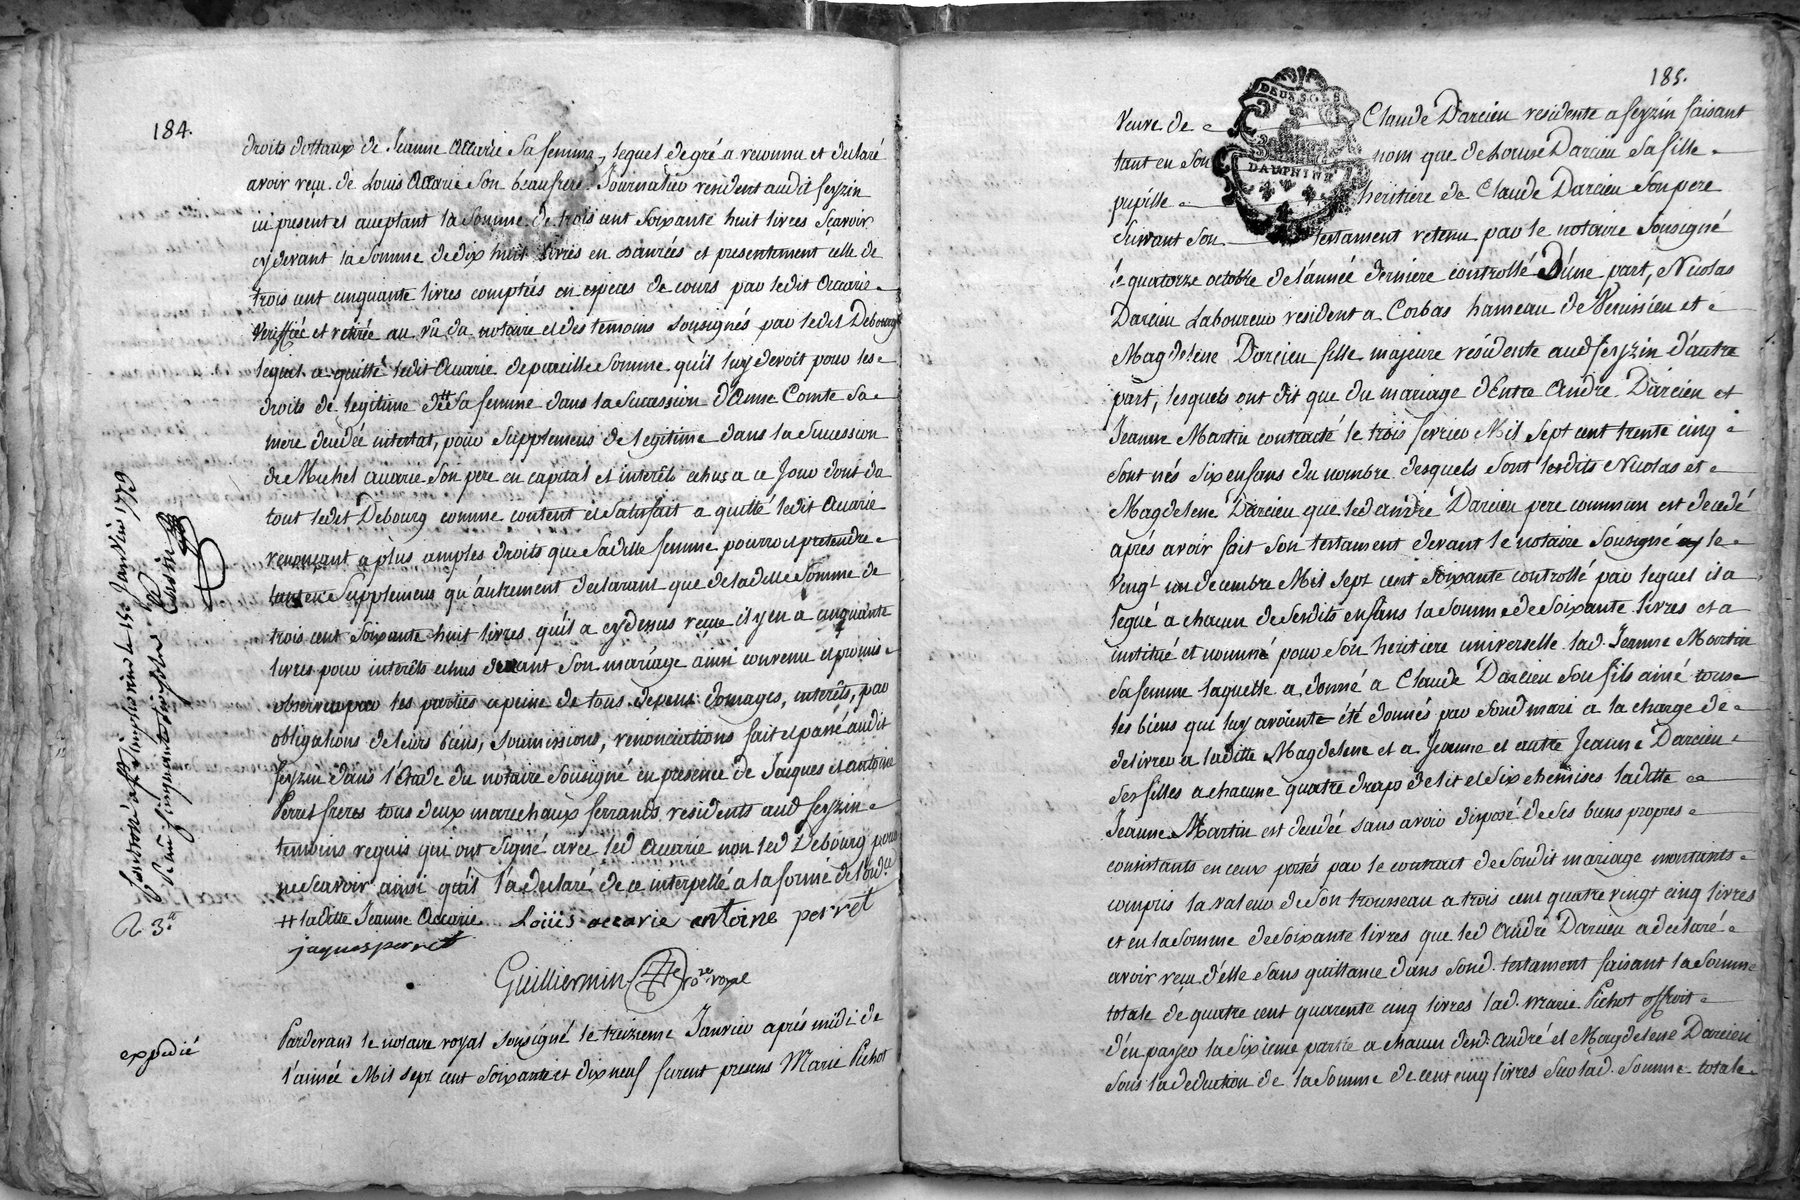 184.
droits dottaux de Jeanne Accarie Sa femme, lequel de gré a reconnu et declaré
avoir reçu de Louis Accarie Son beaufrere Journalier resident audit feyzin
ici present et aceptant la Somme de trois cent Soixante huit livres Scavoir
cy devant la Somme de dix huit livres en danrées et presentement celle de
trois cent cinquante livres comptés en especes de cours par ledit Accarie
veriffiée et retirée au vû du notaire et des temoins Sousignés par ledit Debourg
lequel a quitté ledit Accarie de pareille Somme qu'il luy devoit pour les
droits de legitime dtt Sa femme dans la Succession d'Anne Comte Sa
mere decedée intestat, pour Supplemens de legitime dans la Succession
de Michel Accarie Son pere en capital et interêts echus a ce Jour dont du
tout ledit Debourg comme content et Satisfait a quitté ledit Accarie
renonçant a plus amples droits que Sa ditte femme pourroit pretendre
Supplemens qu'autrement declarant que de la ditte Somme de
trois cent Soixante huit livres qu'il a cy dessus reçue il y en a cinquante
livres pour interêts echus devant Son mariage ainsi convenu et promis
observer par les parties a peine de tous depens domages, interêts, par
obligations de leurs biens, Soumissions, renonciations fait et passé audit
feyzin dans l'Etude du notaire Sousigné en presence de Jacques et antoine
Perret freres tous deux marechaux ferrants residents aud feyzin
temoins requis qui ont Signé avec led Accarie non led Debourg pour
ne Scavoir ainsi qu'il l'a declaré de ce interpellé a la forme de l'ord.ce
# laditte Jeanne Accarie Loüis accarie antoine perret
jaques perret
Guilliermin no.re royal
expedié
Pardevant le notaire royal Sousigné le treizieme Janvier aprés midi de
l'année Mil sept cent Soixante et dix neuf furent presens Marie Pichot
185.
DEUX SOLS
DAUPHINE
Veuve de Claude Darcieu residente a feyzin faisant
tant en Son nom que de Louise Darcieu Sa fille
pupille heritiere de Claude Darcieu Son pere
Suivant Son testament retenu par le notaire Sousigné
le quatorze octobre de l'année derniere controllé D'une part, Nicolas
Darcieu Laboureur resident a Corbas hameau de Venissieu et
Magdelene Darcieu fille majeure résidente aud feyzin d'autre
part, lesquels ont dit que du mariage d'Entre André Darcieu et
Jeanne Martin contracté le trois fevrier Mil Sept cent trente cinq
Sont nés Six enfans du nombre desquels Sont lesdits Nicolas et
Magdelene Darcieu que led andré Darcieu pere commun est decedé
aprés avoir fait Son testament devant le notaire Sousigné le
vingt un decembre Mil Sept cent Soixante controllé par lequel il a
legué a chacun de Sesdits enfans la Somme de Soixante livres et a
institué et nommé pour Son heritiere universelle lad. Jeanne Martin
Sa femme laquelle a donné a Claude Darcieu Son fils ainé tous
les biens qui luy avoient été donnés par Sond mari a la charge de
delivrer a laditte Magdelene et a Jeanne et autre Jeanne Darcieu
Ses filles a chacune quatre draps de lit et Six chemises laditte
Jeanne Martin est decedée sans avoir disposé de Ses biens propres
consistants en ceux portés par le contract de Sondit mariage montants
compris la valeur de Son trousseau a trois cent quatre vingt cinq livres
et en la Somme de Soixante livres que led André Darcieu a declaré
avoir reçu d'elle Sans quittance dans Sond. testament faisant la Somme
totale de quatre cent quarente cinq livres lad. marie Pichot offroit
d'en payer la Sixieme partie a chacun desd. André et Magdelene Darcieu
Sous la deduction de la Somme de cent cinq livres Sur lad. Somme totale